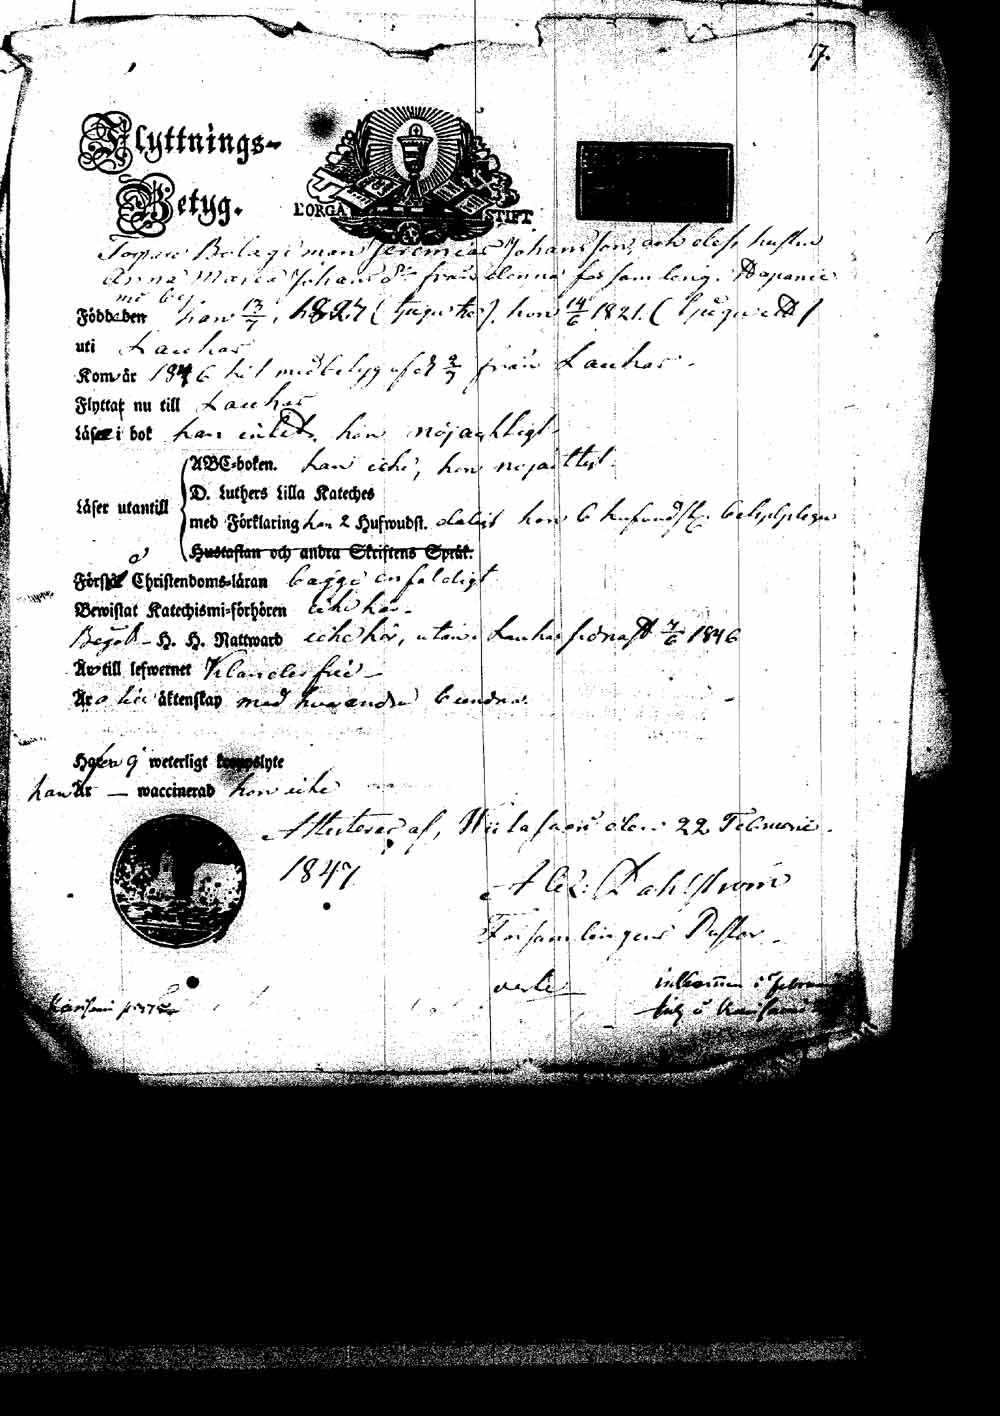 17.
Flyttnings-
Betyg.
BORGÅ STIFT
Bolagsman Jeremias Johansson, och dess hustru
Anna Maria Johansdr från denna församling.
Födde den han 13/7, 1827 (tjugu sju), hon 14/6 1821. (tjugu ett)
uti Laukas
Kom år 1846 hit med betyg af d 2/7 från Laukas.
Flyttar nu till Laukas
Läser i bok han intet, hon nöjagtligt
Läser utantill
ABC-boken. han icke, hon nöjagtligt.
D. Luthers Lilla Kateches
med Förklaring han 2 Hufwudst. dåligt hon 6 hufvudst.
Hustaflan och andra Skriftens Språk.
Förstå Christendoms-läran bägge enfaldigt
Bewistat Katechismi-förhören icke här.
Begått H. H. Nattward icke här, utan i Laukas sednast 7/6 1846
Äro till lefwernet Klanderfrie
Äro här äktenskap med hvarandra bundna.
Hafwa ej weterligt kroppslyte
han Är — waccinerad hon icke
Attesterar af, Wiitasaari den 22 Februarii.
1847
Alex: Dahlström
Församlingens Pastor.
verte
inkommen i Februarii